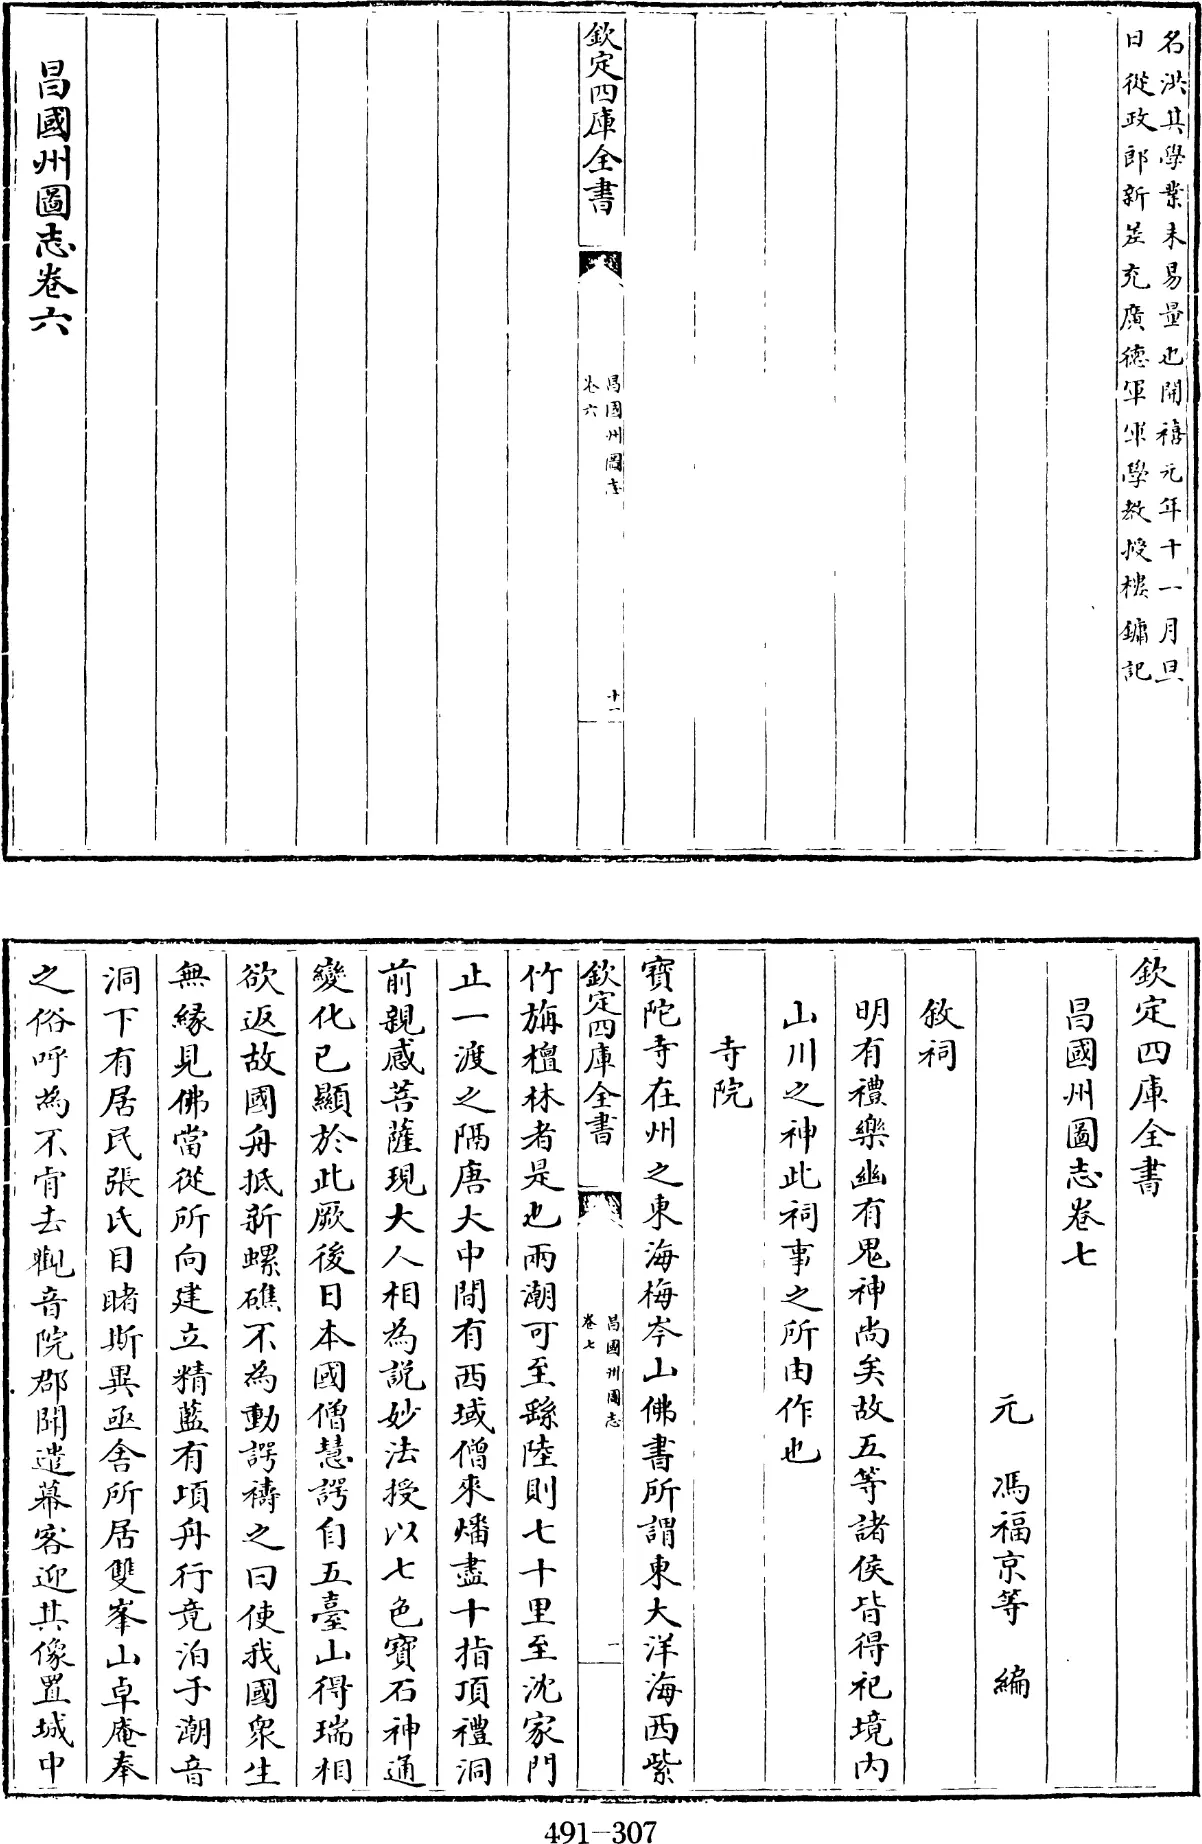 名洪其學業未易量也開禧元年十一月旦
日從政郎新差充廣德軍軍學教授樓鏞記
欽定四庫全書
昌國州圖志
卷六
十一
昌國州圖志卷六
欽定四庫全書
昌國州圖志卷七
元 馮福京等 編
敘祠
明有禮樂幽有鬼神尚矣故五等諸侯皆得祀境內
山川之神此祠事之所由作也
寺院
寶陀寺在州之東海梅岑山佛書所謂東大洋海西紫
欽定四庫全書
昌國州圖志
卷七
一
竹旃檀林者是也兩潮可至繇陸則七十里至沈家門
止一渡之隔唐大中間有西域僧來燔盡十指頂禮洞
前親感菩薩現大人相為說妙法授以七色寶石神通
變化已顯於此厥後日本國僧慧諤自五臺山得瑞相
欲返故國舟抵新螺礁不為動諤禱之曰使我國衆生
無縁見佛當從所向建立精藍有頃舟行竟泊于潮音
洞下有居民張氏目睹斯異亟舍所居雙峯山卓庵奉
之俗呼為不肯去觀音院郡聞遣幕客迎其像置城中
491-307